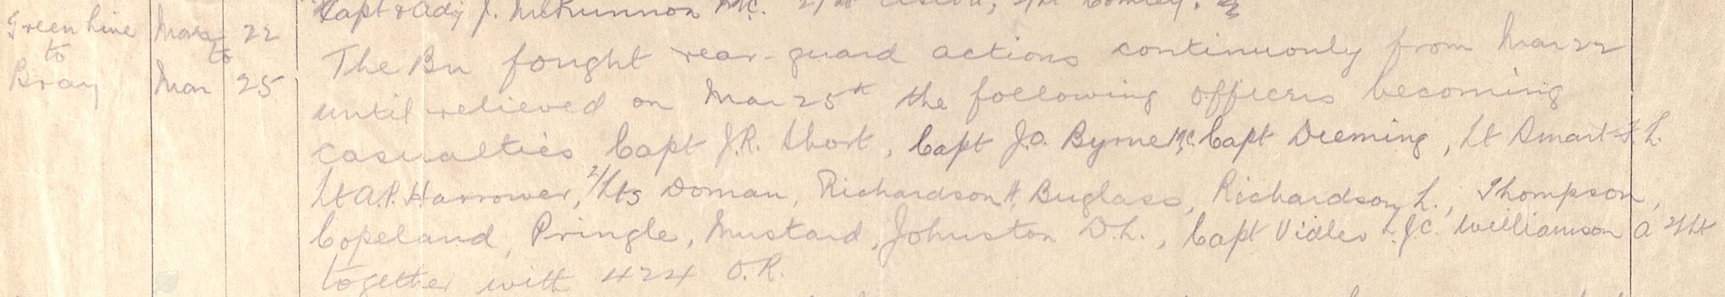 Capt & Adj J. McKinnon MC.
Green Line Mar 22
to to The Bn fought rear-guard actions continuously from Mar 22
Bray Mar 25
until relieved on Mar 25th the following officers becoming
casualties Capt J.R. Short, Capt J.O. Byrne MC. Capt Deeming, Lt Smart F.L.
Lt A.P. Harrower, 2/Lts Doman, Richardson H, Buglass, Richardson L., Thompson,
Copeland, Pringle, Mustard, Johnston D.L., Capt Vidler L. J.C. Williamson A 2/Lt
together with 424 O.R.